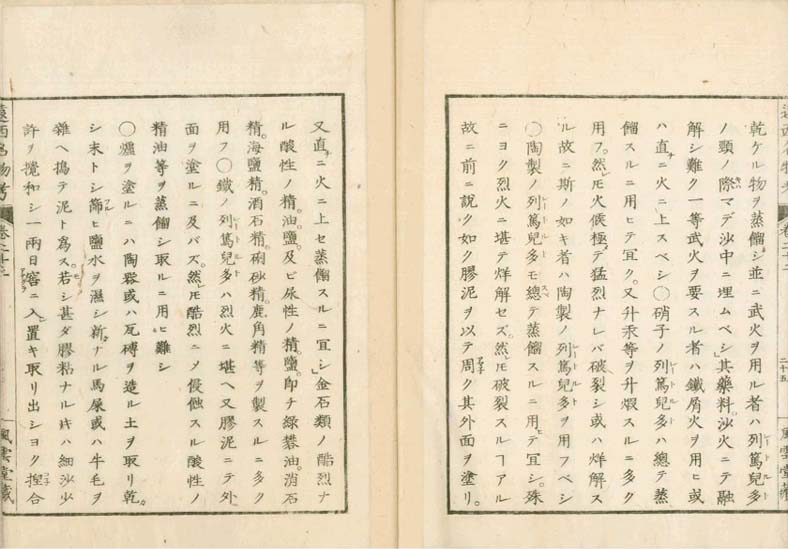 乾ケル物ヲ蒸餾シ並ニ武火ヲ用ル者ハ列篤兒多
ノ頸ノ際マデ沙中ニ埋ムベシ其藥料沙火ニテ融
解シ難ク一等武火ヲ要スル者ハ鐵屑火ヲ用ヒ或
ハ直ニ火ニ上スベシ〇硝子ノ列篤兒多ハ總テ蒸
餾スルニ用ヒテ宜ク又升汞等ヲ升煆スルニ多ク
用フ然𪜈火候極テ猛烈ナレバ破裂シ或ハ烊解ス
ル故ニ斯ノ如キ者ハ陶製ノ列篤兒多ヲ用フベシ
〇陶製ノ列篤兒多モ總テ蒸餾スルニ用ヒテ宜シ殊
ニヨク烈火ニ堪テ烊解セズ然𪜈破裂スルヿアル
故ニ前ニ說ク如ク膠泥ヲ以テ周ク其外面ヲ塗リ
二十五
風雲堂藏
又直ニ火ニ上セ蒸餾スルニ宜シ金石類ノ酷烈ナ
ル酸性ノ精油鹽及ビ尿性ノ精鹽卽チ綠礬油消石
精海鹽精酒石精硇砂精鹿角精等ヲ製スルニ多ク
用フ〇鐵ノ列篤兒多ハ烈火ニ堪ヘ又膠泥ニテ外
面ヲ塗ルニ及バズ然𪜈酷烈ニメ侵蝕スル酸性ノ
精油等ヲ蒸餾シ取ルニ用ヒ難シ
〇爐ヲ塗ルニハ陶器或ハ瓦磚ヲ造ル土ヲ取リ乾
シ末トシ篩ヒ鹽水ヲ濕シ新ナル馬屎或ハ牛毛ヲ
雜ヘ搗テ泥ト爲ス若シ甚ダ膠粘ナル𪜈ハ細沙少
許ヲ攪和シ一兩日窖ニ入置キ取リ出シヨク捏合
遠西名物考
風雲堂藏